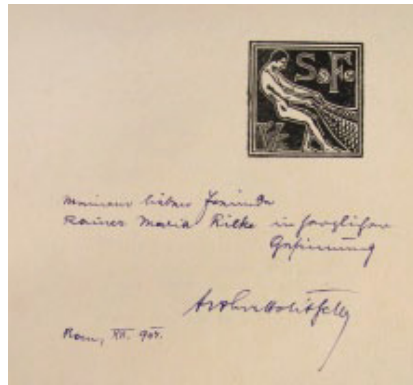 S. F.
V.
Meinem lieben Freunde
Rainer Maria Rilke in herzlicher
Gesinnung
Arthur Holitscher
Rom, XII.